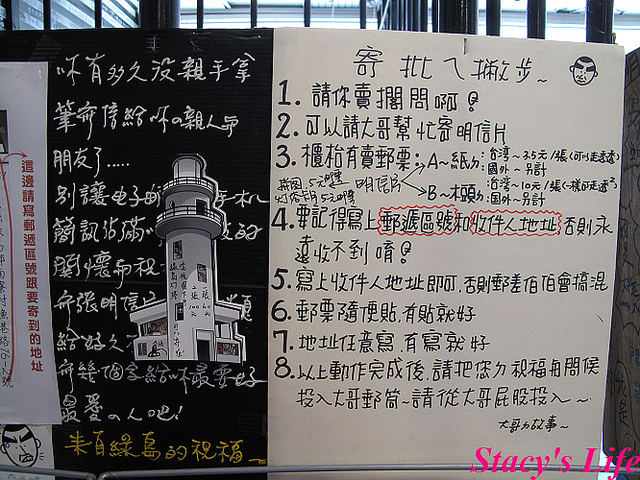 這邊請寫郵遞區號跟要寄到的地址
咔有多久沒親手拿
筆寄信給咔の親人或
朋友了.....
別讓电子郵
手机
簡訊沾滿
關懷和祝
寄張明信
給好久
寄幾個字給咔最要好
最愛の人吧!
來自綠島的祝福
寄批ㄟ撇步~
1. 請你賣擱問啊!
2. 可以請大哥幫忙寄明信片
3. 櫃枱有賣郵票:
明信片
A~紙力:台灣~3.5元/張(可以走透透)
國外~另計
B~木頭力:台灣~10元/張(一樣可走透透)
國外~另計
4. 要記得寫上郵遞區號和收件人地址否則永
遠收不到唷!
5. 寫上收件人地址即可,否則郵差伯伯會搞混
6. 郵票隨便貼.有貼就好
7. 地址任意寫.有寫就好
8. 以上動作完成後.請把您力祝福與問候
投入大哥郵筒~請從大哥屁股投入~
大哥力故事~
Stacy's Life